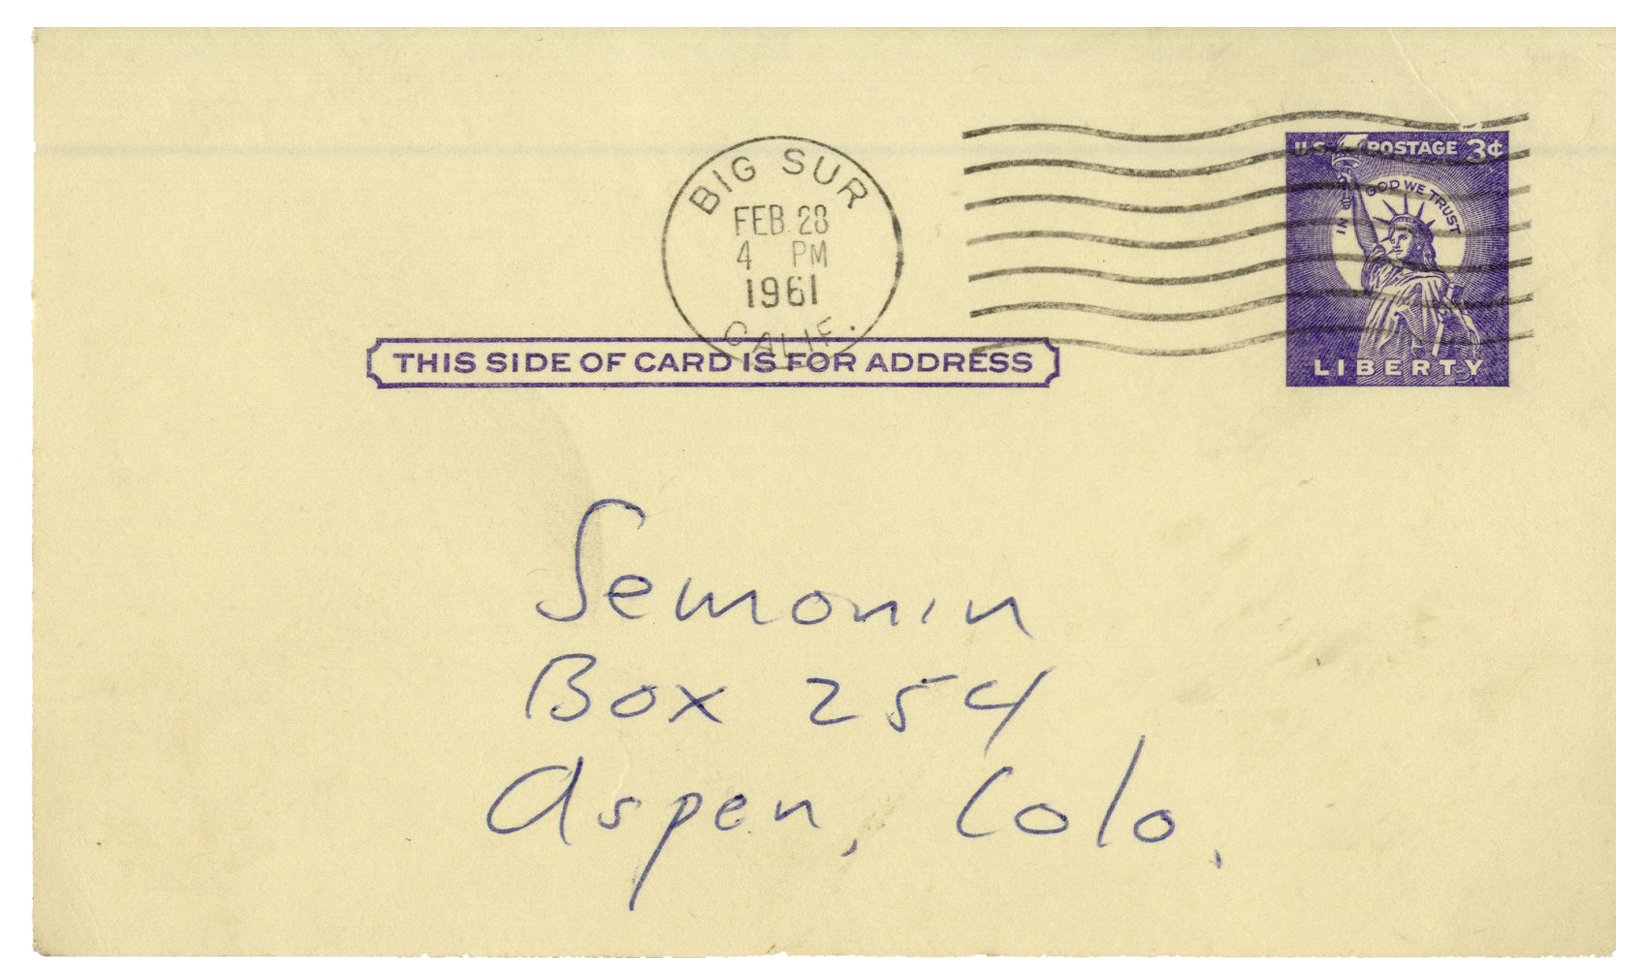 BIG SUR
FEB 28
4 PM
1961
CALIF.
U.S. POSTAGE 3¢
IN GOD WE TRUST
LIBERTY
THIS SIDE OF CARD IS FOR ADDRESS
Semonin
Box 254
Aspen, Colo.